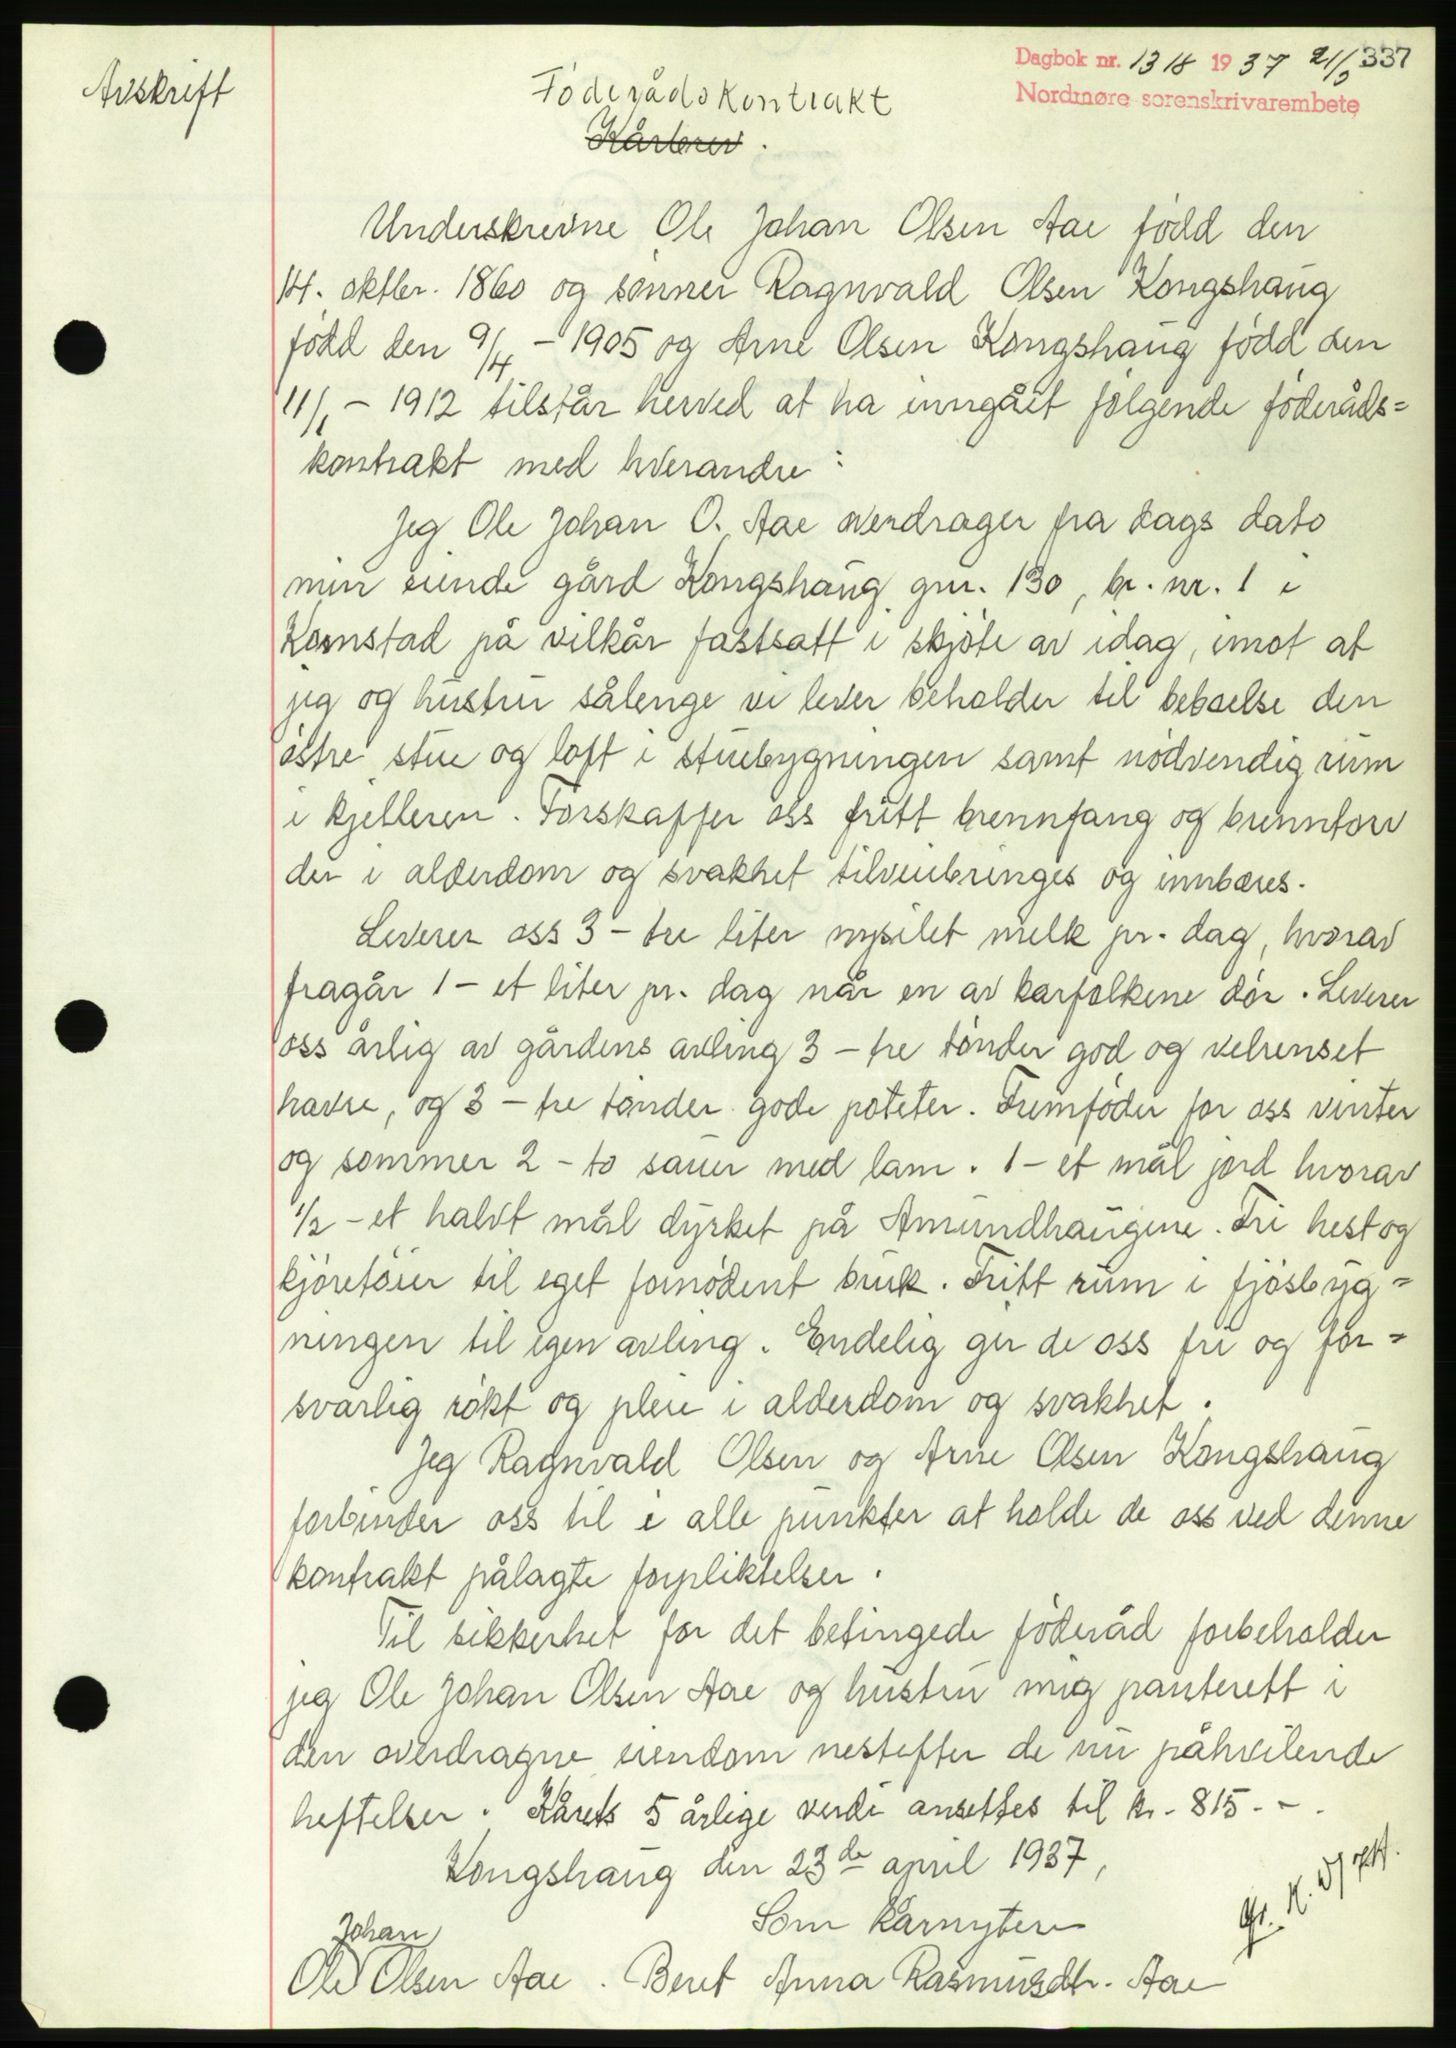 Avskrift
Dagbok nr. 1318 1937 21/5 337
Nordmøre sorenskrivarembete
Föderådskontrakt
Kårbrev.
Underskrevne Ole Johan Olsen Aae född den
14. oktbr. 1860 og sönner Ragnvald Olsen Kongshaug
född den 9/4 - 1905 og Arne Olsen Kongshaug född den
11/1 - 1912 tilstår herved at ha inngået fölgende föderåds=
kontrakt med hverandre:
Jeg Ole Johan O. Aae overdrager fra dags dato
min eiende gård Kongshaug gnr. 130, br. nr. 1 i
Kornstad på vilkår fastsatt i skjöte av idag, imot at
jeg og hustru sålenge vi lever beholder til beboelse den
östre stue og loft i stuebygningen samt nödvendig rum
i kjelleren. Forskaffer oss fritt brennfang og brenntorv
der i alderdom og svakhet tilveiebringes og innbæres.
Leverer oss 3 - tre liter nysilet melk pr. dag, hvorav
fragår 1 - et liter pr. dag når en av kårfolkene dör. Leverer
oss årlig av gårdens avling 3 - tre tönder god og velrenset
havre, og 3 - tre tönder gode poteter. Fremföder for oss vinter
og sommer 2 - to sauer med lam. 1 - et mål jord hvorav
1/2 - et halvt mål dyrket på Amundhaugene. Fri hest og
kjöretöier til eget fornödent bruk. Fritt rum i fjösbyg=
ningen til egen avling. Endelig gir de oss fri og for=
svarlig rökt og pleie i alderdom og svakhet.
Jeg Ragnvald Olsen og Arne Olsen Kongshaug
forbinder oss til i alle punkter at holde de oss ved denne
kontrakt pålagte forpliktelser.
Til sikkerhet for det betingede föderåd forbeholder
jeg Ole Johan Olsen Aae og hustru mig panterett i
den overdragne eiendom nestefter de nu påhvilende
heftelser. Kårets 5 årlige verdi ansettes til kr. 815.-.
Kongshaug den 23de april 1937,
Som kårnytere
Johan
Ole Olsen Aae. Beret Anna Rasmusdtr. Aae